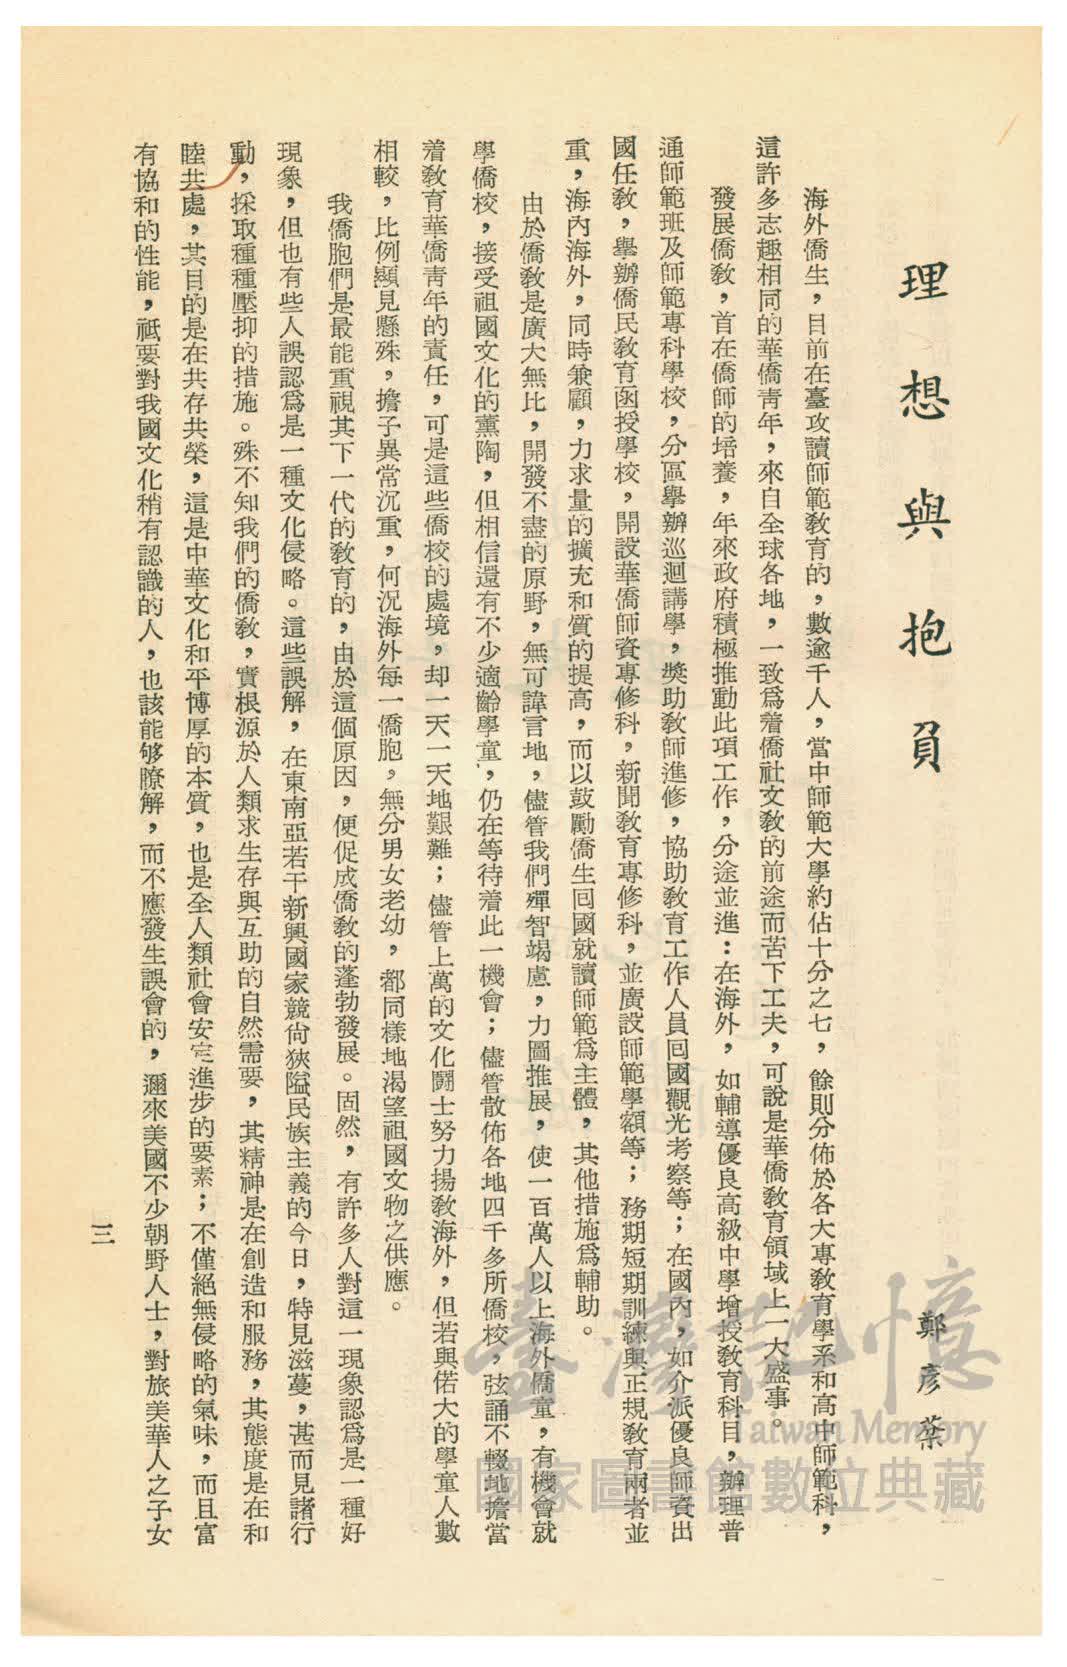 理想與抱負
鄭彥棻
海外僑生，目前在臺攻讀師範教育的，數逾千人，當中師範大學約佔十分之七，餘則分佈於各大專教育學系和高中師範科，
這許多志趣相同的華僑青年，來自全球各地，一致爲着僑社文教的前途而苦下工夫，可說是華僑教育領域上一大盛事。
發展僑教，首在僑師的培養，年來政府積極推動此項工作，分途並進：在海外，如輔導優良高級中學增授教育科目，辦理普
通師範班及師範專科學校，分區舉辦巡迴講學，獎助教師進修，協助教育工作人員回國觀光考察等；在國內，如介派優良師資出
國任教，舉辦僑民教育函授學校，開設華僑師資專修科，新聞教育專修科，並廣設師範學額等；務期短期訓練與正規教育兩者並
重，海內海外，同時兼顧，力求量的擴充和質的提高，而以鼓勵僑生回國就讀師範爲主體，其他措施爲輔助。
由於僑教是廣大無比，開發不盡的原野，無可諱言地，儘管我們殫智竭慮，力圖推展，使一百萬人以上海外僑童，有機會就
學僑校，接受祖國文化的薰陶，但相信還有不少適齡學童，仍在等待着此一機會；儘管散佈各地四千多所僑校，弦誦不輟地擔當
着教育華僑青年的責任，可是這些僑校的處境，却一天一天地艱難；儘管上萬的文化鬪士努力揚教海外，但若與偌大的學童人數
相較，比例顯見懸殊，擔子異常沉重，何況海外每一僑胞，無分男女老幼，都同樣地渴望祖國文物之供應。
我僑胞們是最能重視其下一代的教育的，由於這個原因，便促成僑教的蓬勃發展。固然，有許多人對這一現象認爲是一種好
現象，但也有些人誤認爲是一種文化侵略。這些誤解，在東南亞若干新興國家競尚狹隘民族主義的今日，特見滋蔓，甚而見諸行
動，採取種種壓抑的措施。殊不知我們的僑教，實根源於人類求生存與互助的自然需要，其精神是在創造和服務，其態度是在和
睦共處，其目的是在共存共榮，這是中華文化和平博厚的本質，也是全人類社會安定進步的要素；不僅絕無侵略的氣味，而且富
有協和的性能，祗要對我國文化稍有認識的人，也該能够瞭解，而不應發生誤會的，邇來美國不少朝野人士，對旅美華人之子女
三
臺灣記憶
Taiwan Memory
國家圖書館數位典藏